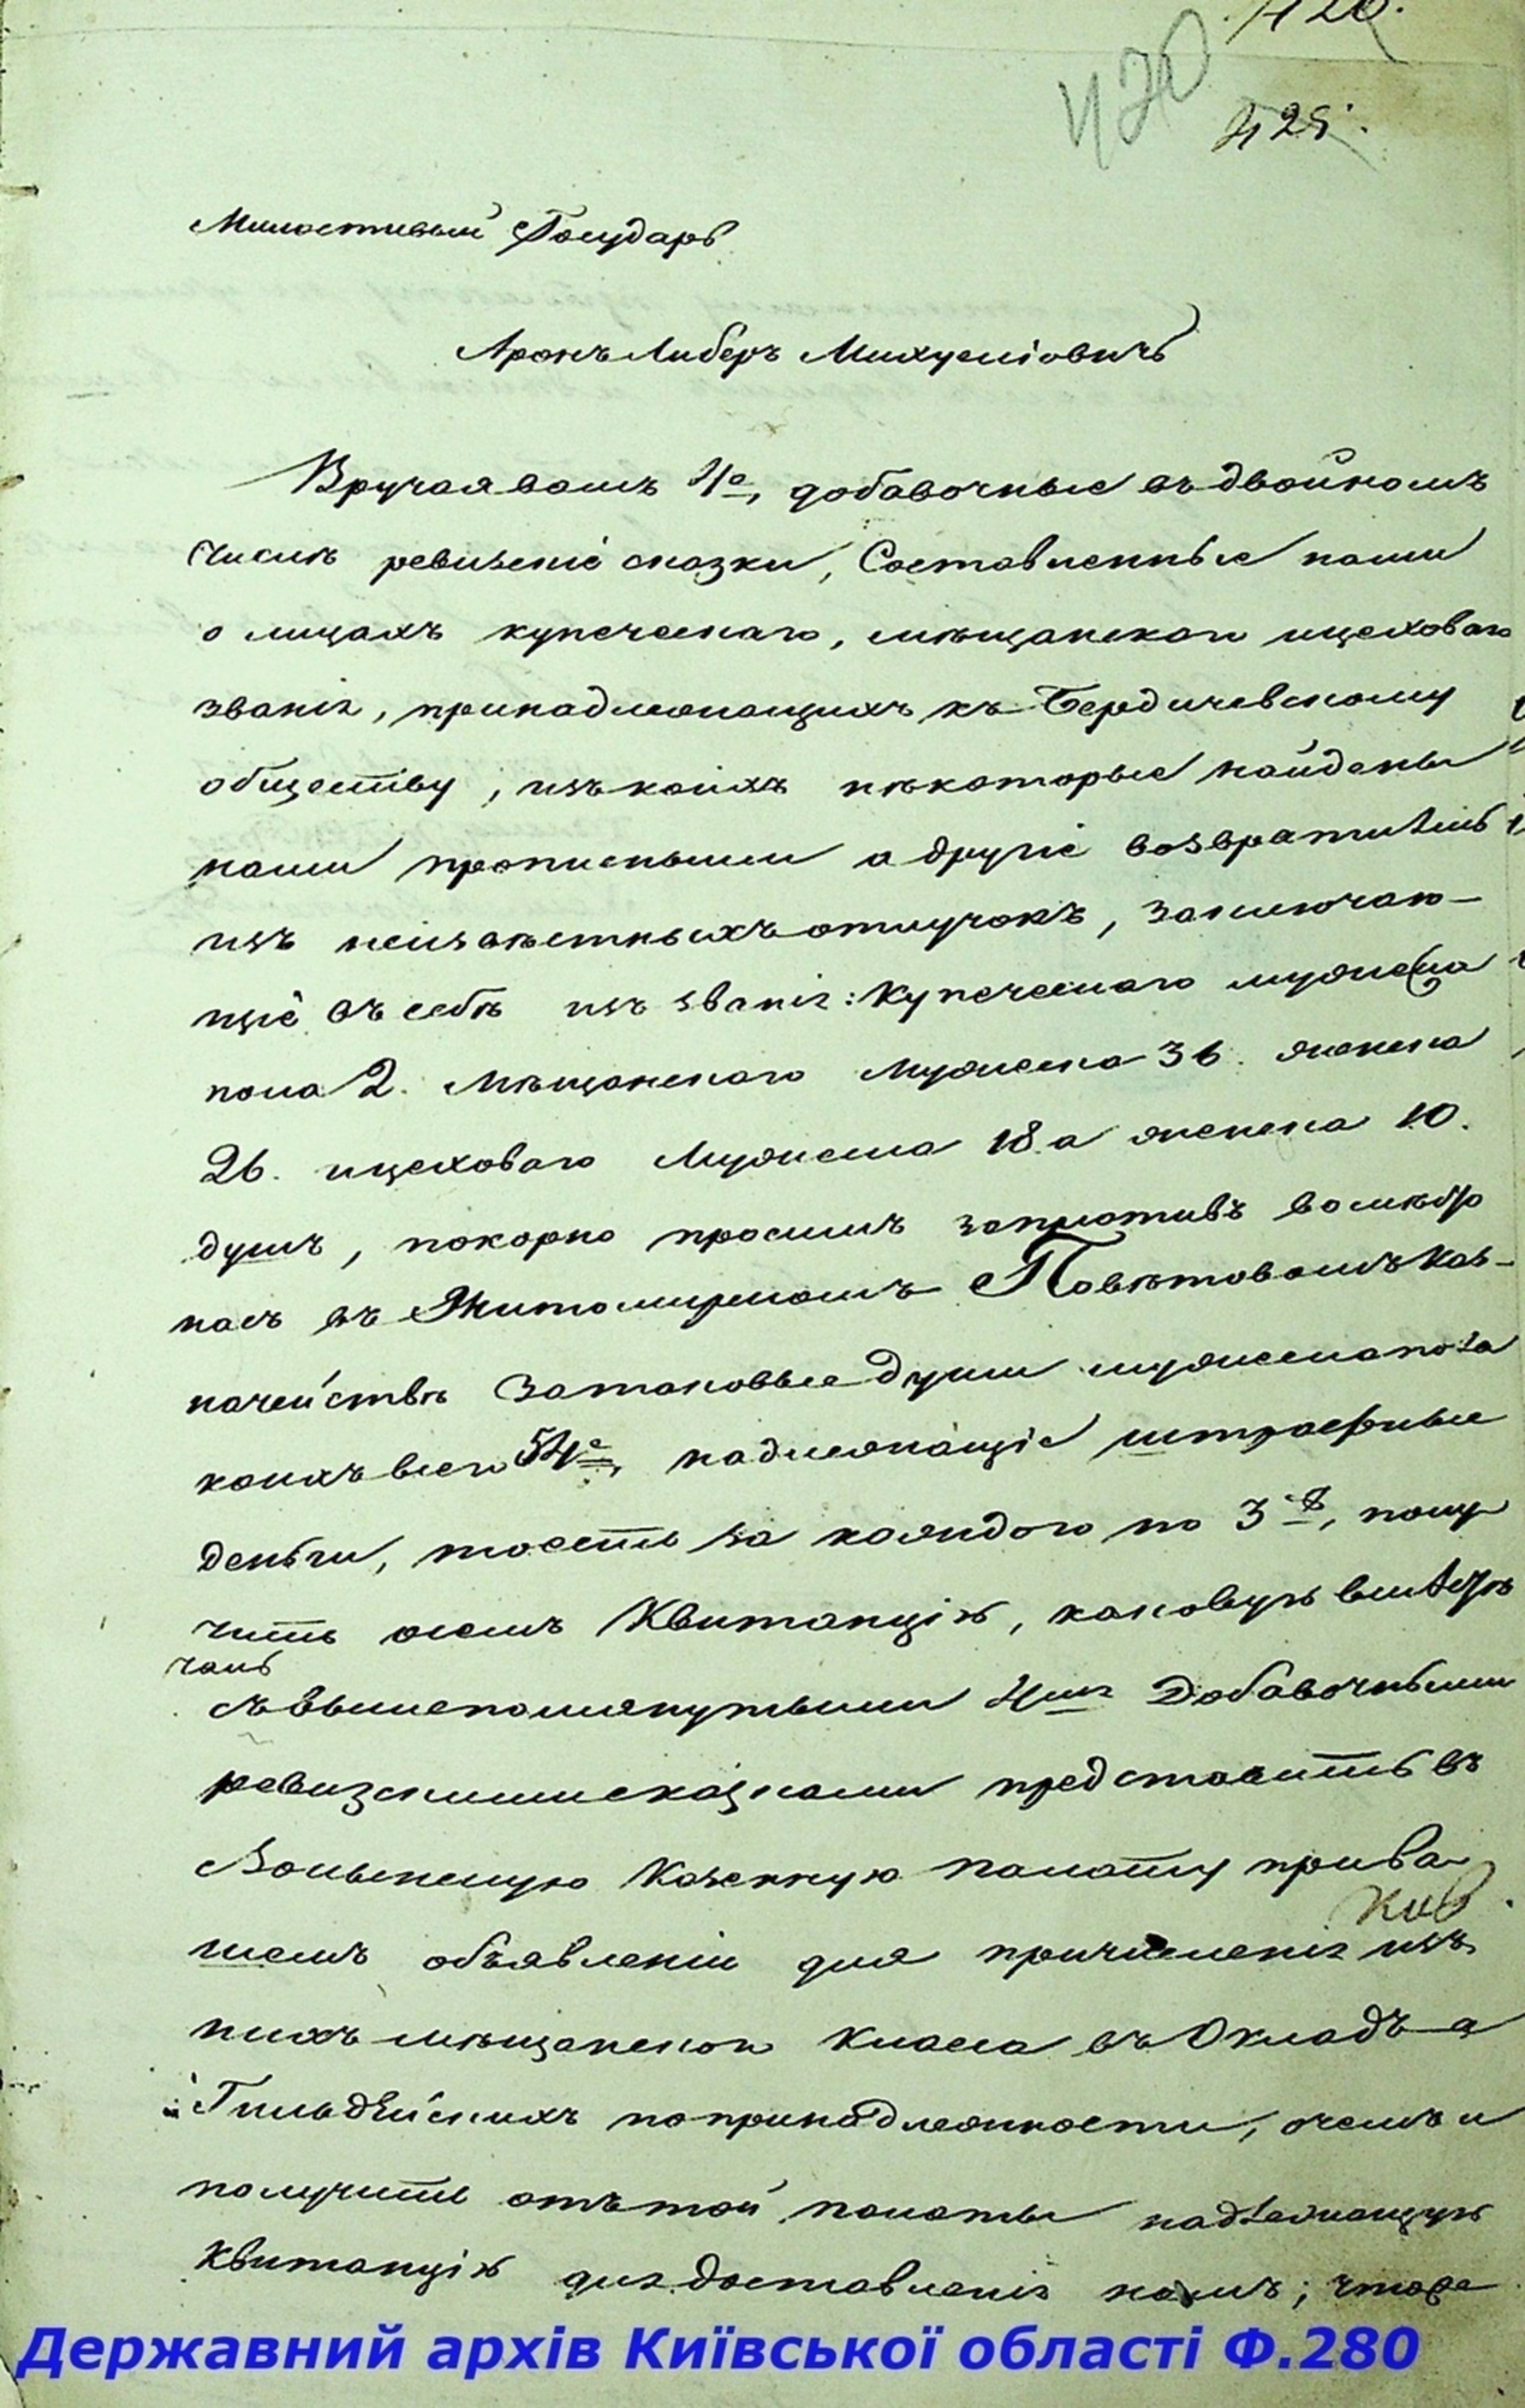 420.
420
425.
Милостивый Государь
Аронъ Либеръ Михуеліовичъ
Вручая вамъ 4е, добавочные въ двойномъ
числѣ ревизскіе сказки, Составленные нами
о лицахъ купеческаго, мѣщанскаго и цеховаго
званія, принадлежащихъ къ Бердичевскому
обществу, изъ коихъ нѣкоторые найдены
нами прописными а другіе возвратились
изъ неизвѣстныхъ отлучокъ, заключаю-
щіе въ себѣ изъ званія: Купеческаго мужеска
пола 2. Мѣщанскаго Мужеска 36. женска
26. и цеховаго Мужеска 18. а женска 10.
душъ, покорно просимъ заплотивъ вомѣсто
насъ въ Житомирскомъ Повѣтовомъ Каз-
начействѣ За таковые души мужеска пола
коихъ всего 54е, надлежащіе штрафные
деньги, тоесть за каждого по 3 , полу
чить оттомъ Квитанцію, каковую вместѣ
съ вышепомянутыми 4мя Добавочными
ревизскими сказками представить въ
Волынскую Казенную палату при ва
шемъ объявленіи для причисленія изъ
нихъ мѣщанского Класса въ Окладъ а
Гильдейскихъ попринадлежности, очемъ и
получить отътой палаты надлежащую
Квитанцію для доставленія намъ; чтоже
Державний архів Київської області Ф.280